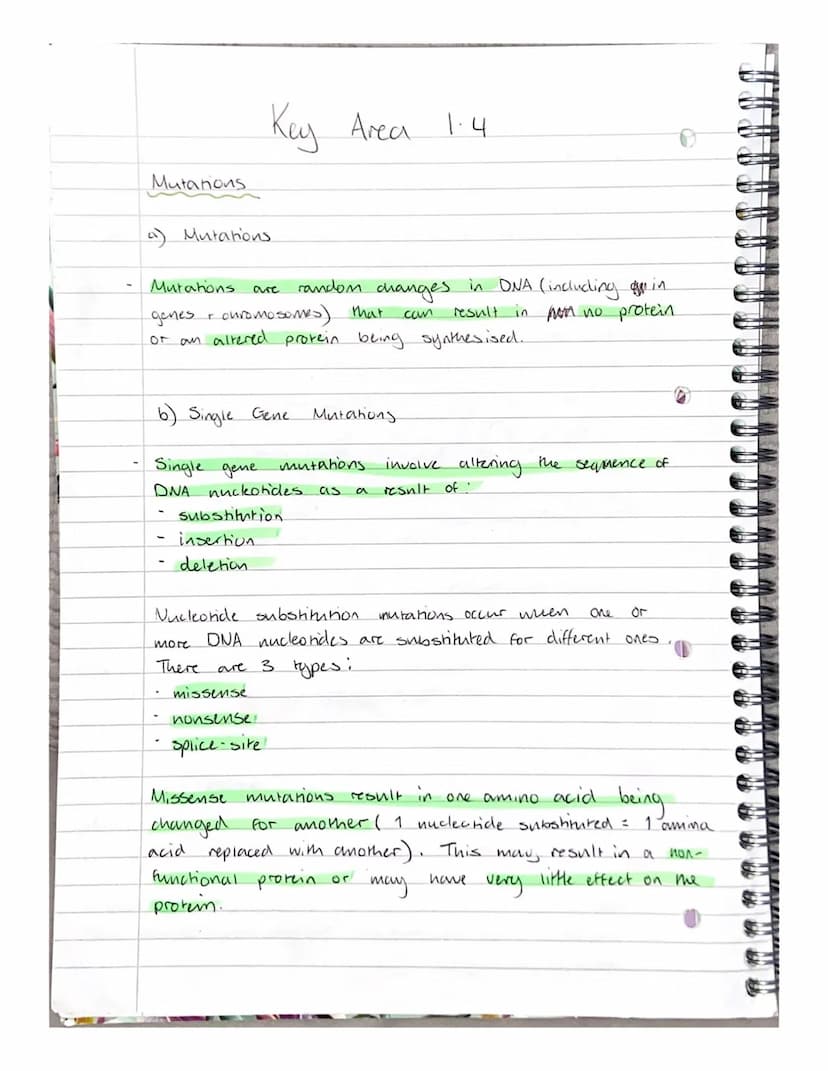 Key Area 1.4
Mutations
a) Mutations
- Mutations are random changes in DNA (including in
genes + chromosomes) that can result in no protein
or an altered protein being synthesised.
b) Single Gene Mutations
- Single gene mutations involve altering the sequence of
DNA nucleotides as a result of:
- substitution
- insertion
- deletion
Nucleotide substitution mutations occur when one or
more DNA nucleotides are substituted for different ones.
There are 3 types:
· missense
- nonsense
· splice-site
Missense mutations result in one amino acid being
changed for another ( 1 nucleotide substituted = 1 amino
acid replaced with another). This may result in a non-
functional protein or may have very little effect on the
protein.